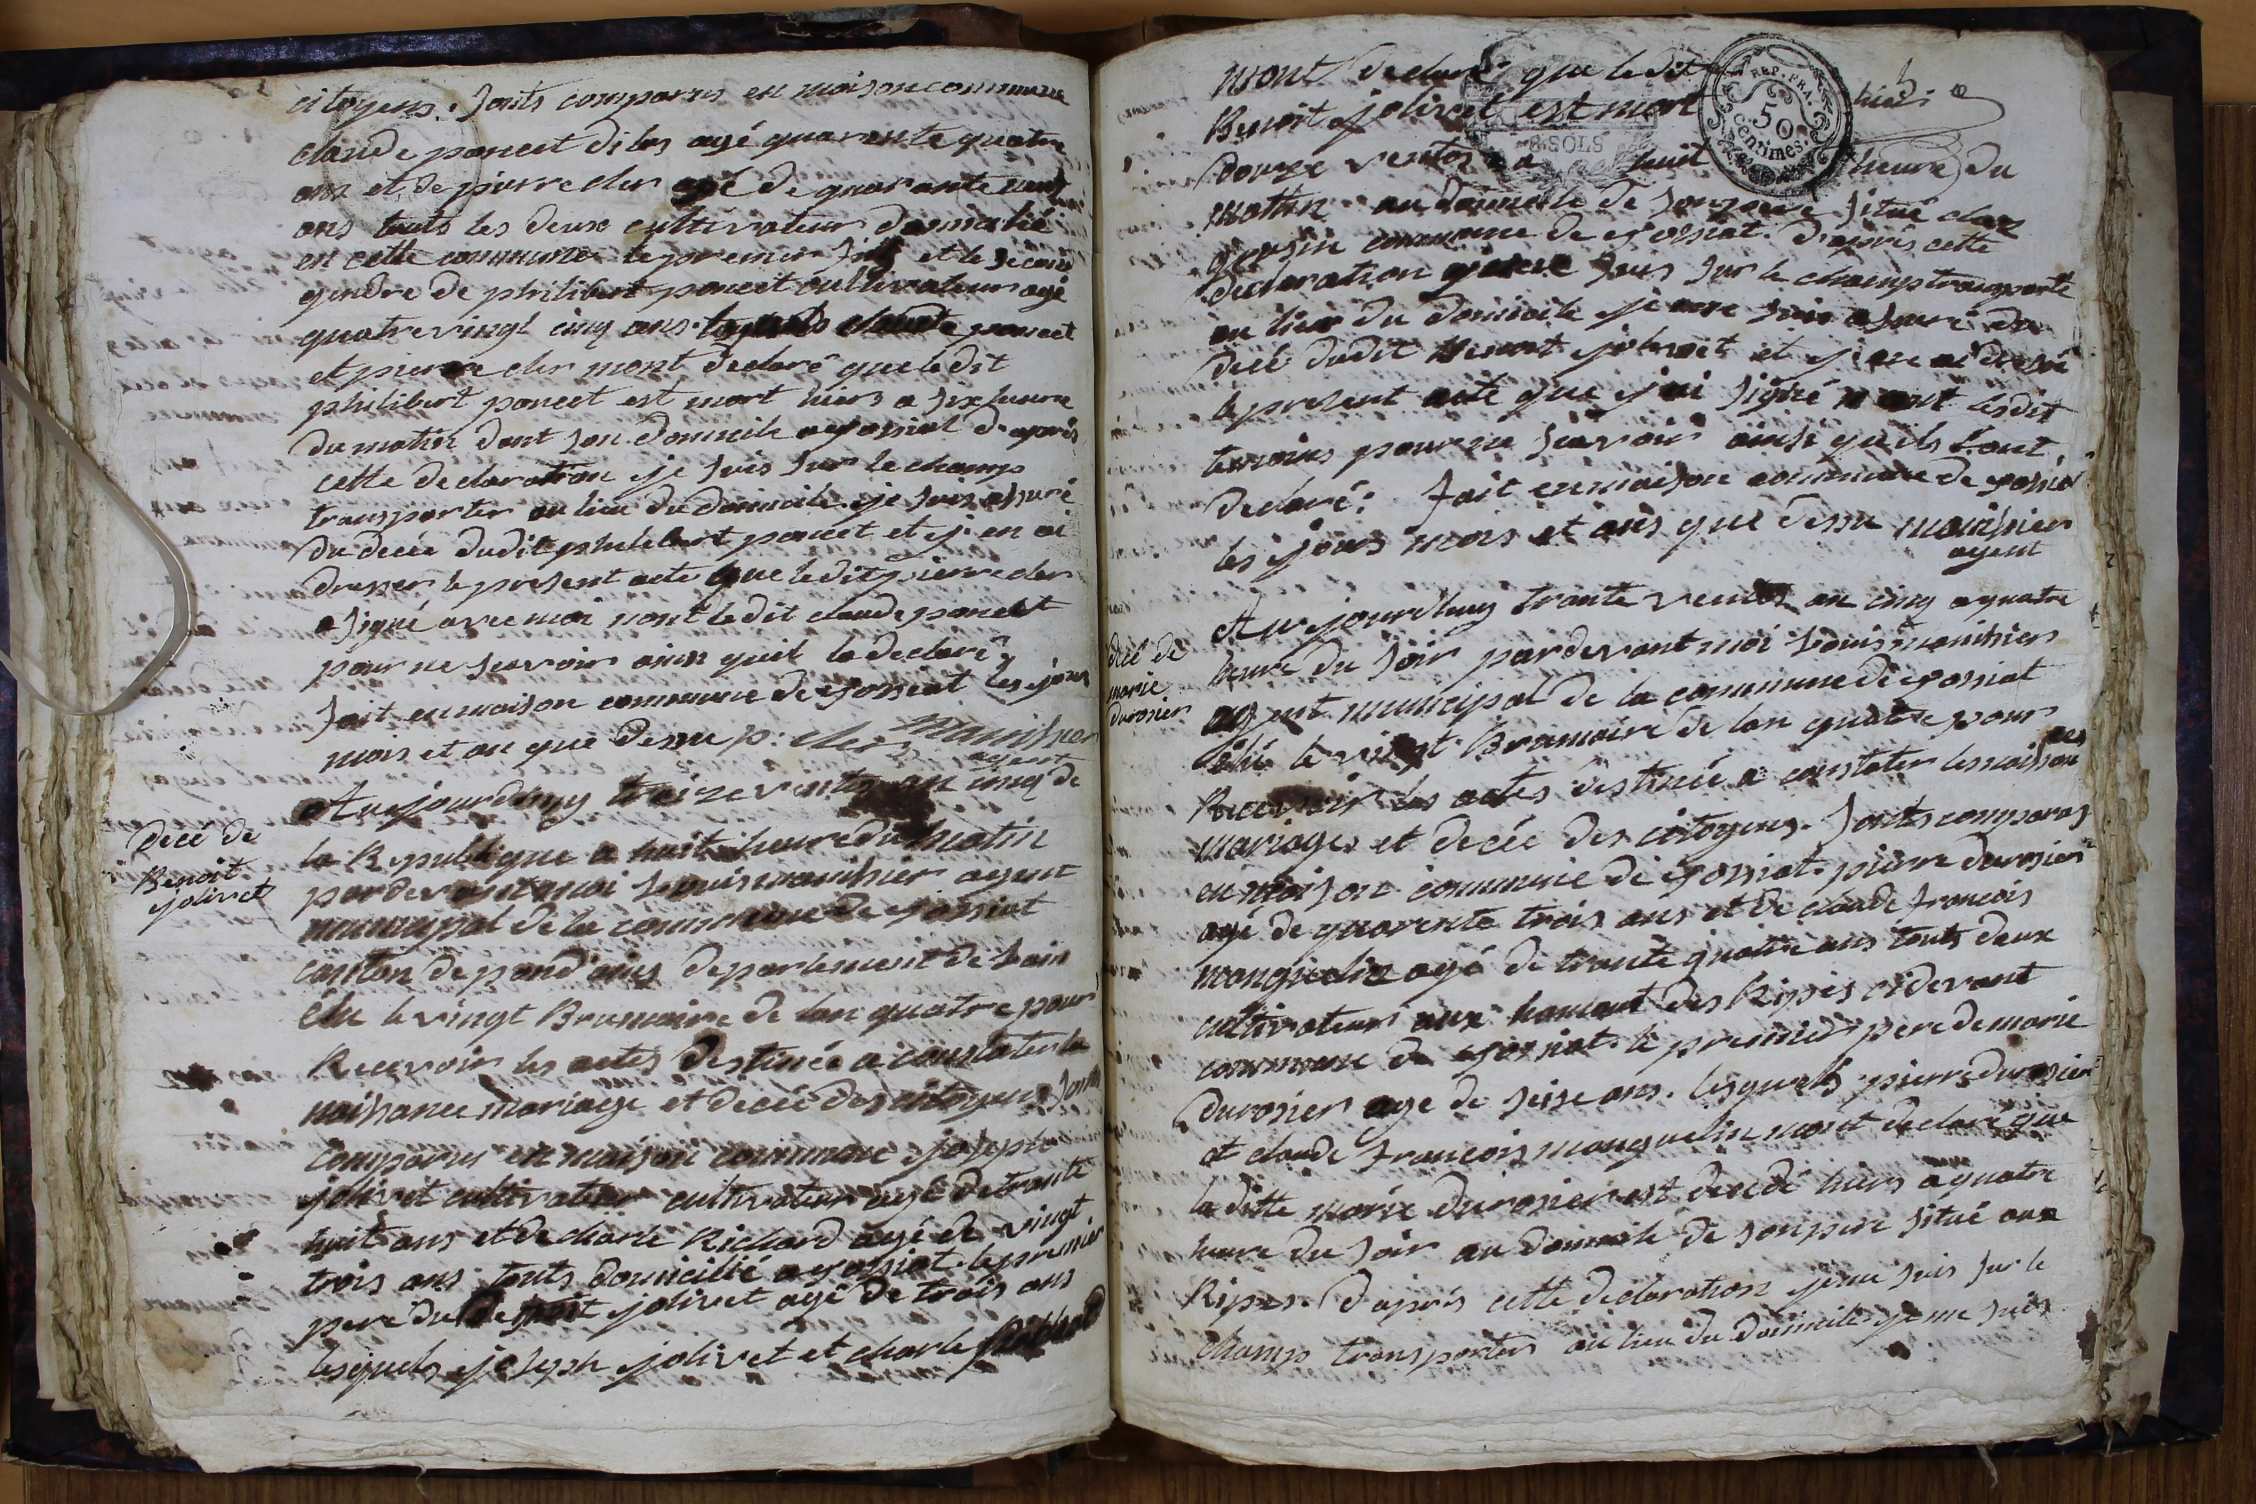 citoyens. sonts comparus en maison commune
claude poncet di las agé quarente quatre
ans et de pierre cler agé de quarante
ans touts les deux cultivateur domicilié
en cette commune le premier fils et le second
gendre de philibert poncet cultivateur agé
quatre vingt cinq ans lequels claude poncet
et pierre cler mont declaré que ledit
philibert poncet est mort hiers a six heure
du matin dant son domicile a jossiat d'après
cette declaration je suis sur le champ
transporter au lieu du domicile je suis assuré
du decée dudit philibert poncet et j'en ai
dresser le present acte que ledit pierre cler
a signé avec moi nont ledit claude poncet
pour ne scavoir ainsi quil la declaré
fait en maison commune de jossiat les jours
mois et an que dessu p. cler manihier
agent
decé de
Benoit
jolivet
Aujourdhuy treize ventos an cinq de
la Republique a huit heure du matin
pardevant moi Louis manihier agent
municipal de la commune de jossiat
canton de pond'ains departement de lain
élu le vingt Brumaire de lan quatre pour
Recevoir les actes destinée a constater la
naissance mariage et decée des citoyens sont
comparus en maison commune joseph
jolivet cultivateur cultivateur agé de trante
huit ans et de charle Richard agé de vingt
trois ans touts domicilié a jossiat. le premier
pere du Benoit jolivet agé de trois ans
lesquels joseph jolivet et charle Richard
REP. FRA.
50
centimes.
8 SOLS
mont declaré que ledit
Benoit jolivet est mort hiers
douze ventos a huit heure du
mattin au domicile de son pere situé chez
gousin commune de jossiat. d'après cette
declaration je me suis sur le champ transporté
au lieu du domicile je me suis assuré du
decé dudit Benoit jolivet et j'en ai dressé
le present acte que j'ai signé nont lesdit
temoins pour ne scavoir ainsi quils l'ont
declaré. fait en maison commune de jossiat
les jours mois et ans que dessu manihier
agent
decé de
marie
durosier
Aujourdhuy trante ventos an cinq a quatre
heure du soir pardevant moi Louis manihier
agent municipal de la commune de jossiat
élu le vingt Brumaire de lan quatre pour
Recevoir les actes destinée a constater les naissances
mariages et decée des citoyens. sonts comparus
en maison commune de jossiat. pierre durosier
agé de quarente trois ans et de claude francois
manguelin agé de trante quatre ans touts deux
cultivateur aux hamant des Ripes cidevant
commune de jossiat. le premier pere de marie
durosier age de seise ans. lesquels pierre durosier
et claude francois manguelin mont declaré que
la ditte marie durosier est decedé hiers a quatre
heure du soir au domicile de son pere situé aux
Ripes. d'après cette declaration je me suis sur le
champ transporter au lieu du domicile je me suis